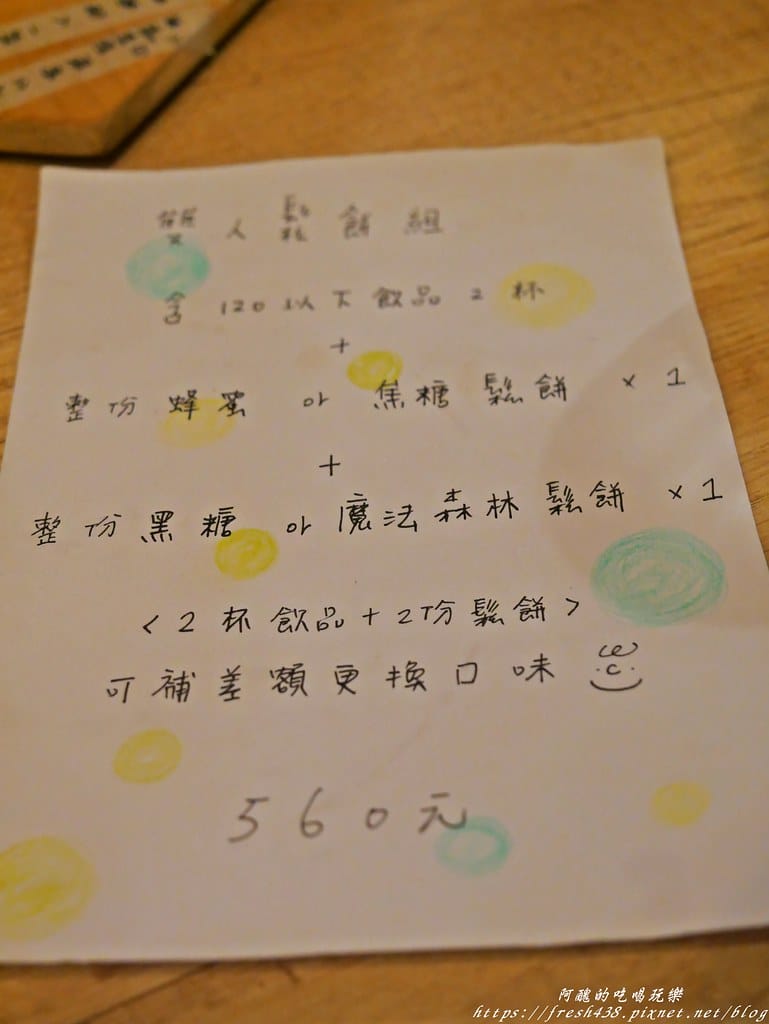 雙人鬆餅組
含120以下飲品2杯
+
整份蜂蜜 or 焦糖鬆餅 x 1
+
整份黑糖 or 魔法森林鬆餅 x 1
<2杯飲品+2份鬆餅>
可補差額更換口味
560元
阿醜的吃喝玩樂
https://fresh438.pixnet.net/blog